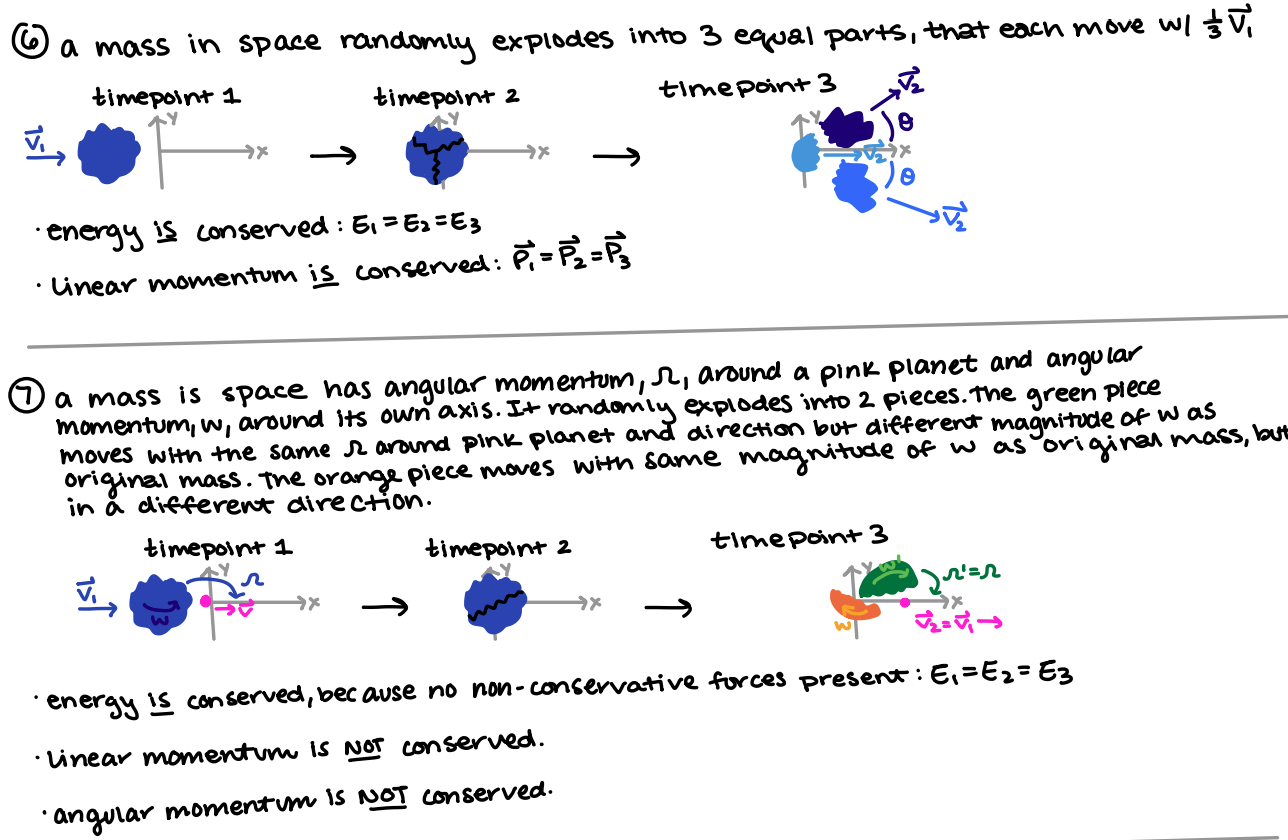 ⑥ a mass in space randomly explodes into 3 equal parts, that each move w/ 1/3 V⃗₁
timepoint 1
timepoint 2
timepoint 3
V⃗₁
Y
x
Y
x
Y
x
V⃗₂
θ
V⃗₂
θ
V⃗₂
· energy is conserved: E₁=E₂=E₃
· linear momentum is conserved: P⃗₁=P⃗₂=P⃗₃
⑦ a mass is space has angular momentum, Ω, around a pink planet and angular
momentum, w, around its own axis. It randomly explodes into 2 pieces. The green piece
moves with the same Ω around pink planet and direction but different magnitude of w as
original mass. The orange piece moves with same magnitude of w as original mass, but
in a different direction.
timepoint 1
timepoint 2
timepoint 3
V⃗₁
w
Y
Ω
x
v⃗
Y
x
Y
w'
Ω'=Ω
x
w
V⃗₂=V⃗₁ →
· energy is conserved, because no non-conservative forces present: E₁=E₂=E₃
· linear momentum is NOT conserved.
· angular momentum is NOT conserved.